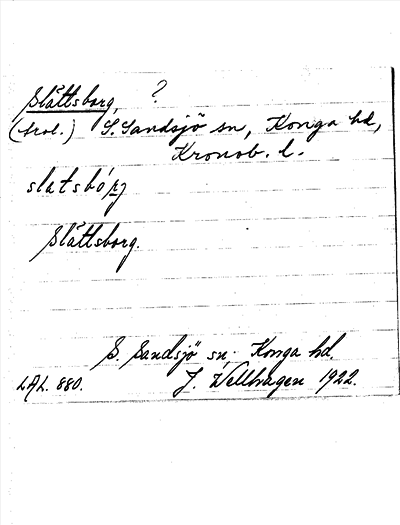 Slättsborg, ?
S. Sandsjö sn, Konga hd,
Kronob. l.
Slättsborg.
S. Sandsjö sn. Konga hd.
LAL. 880. J. Wellhagen 1922.